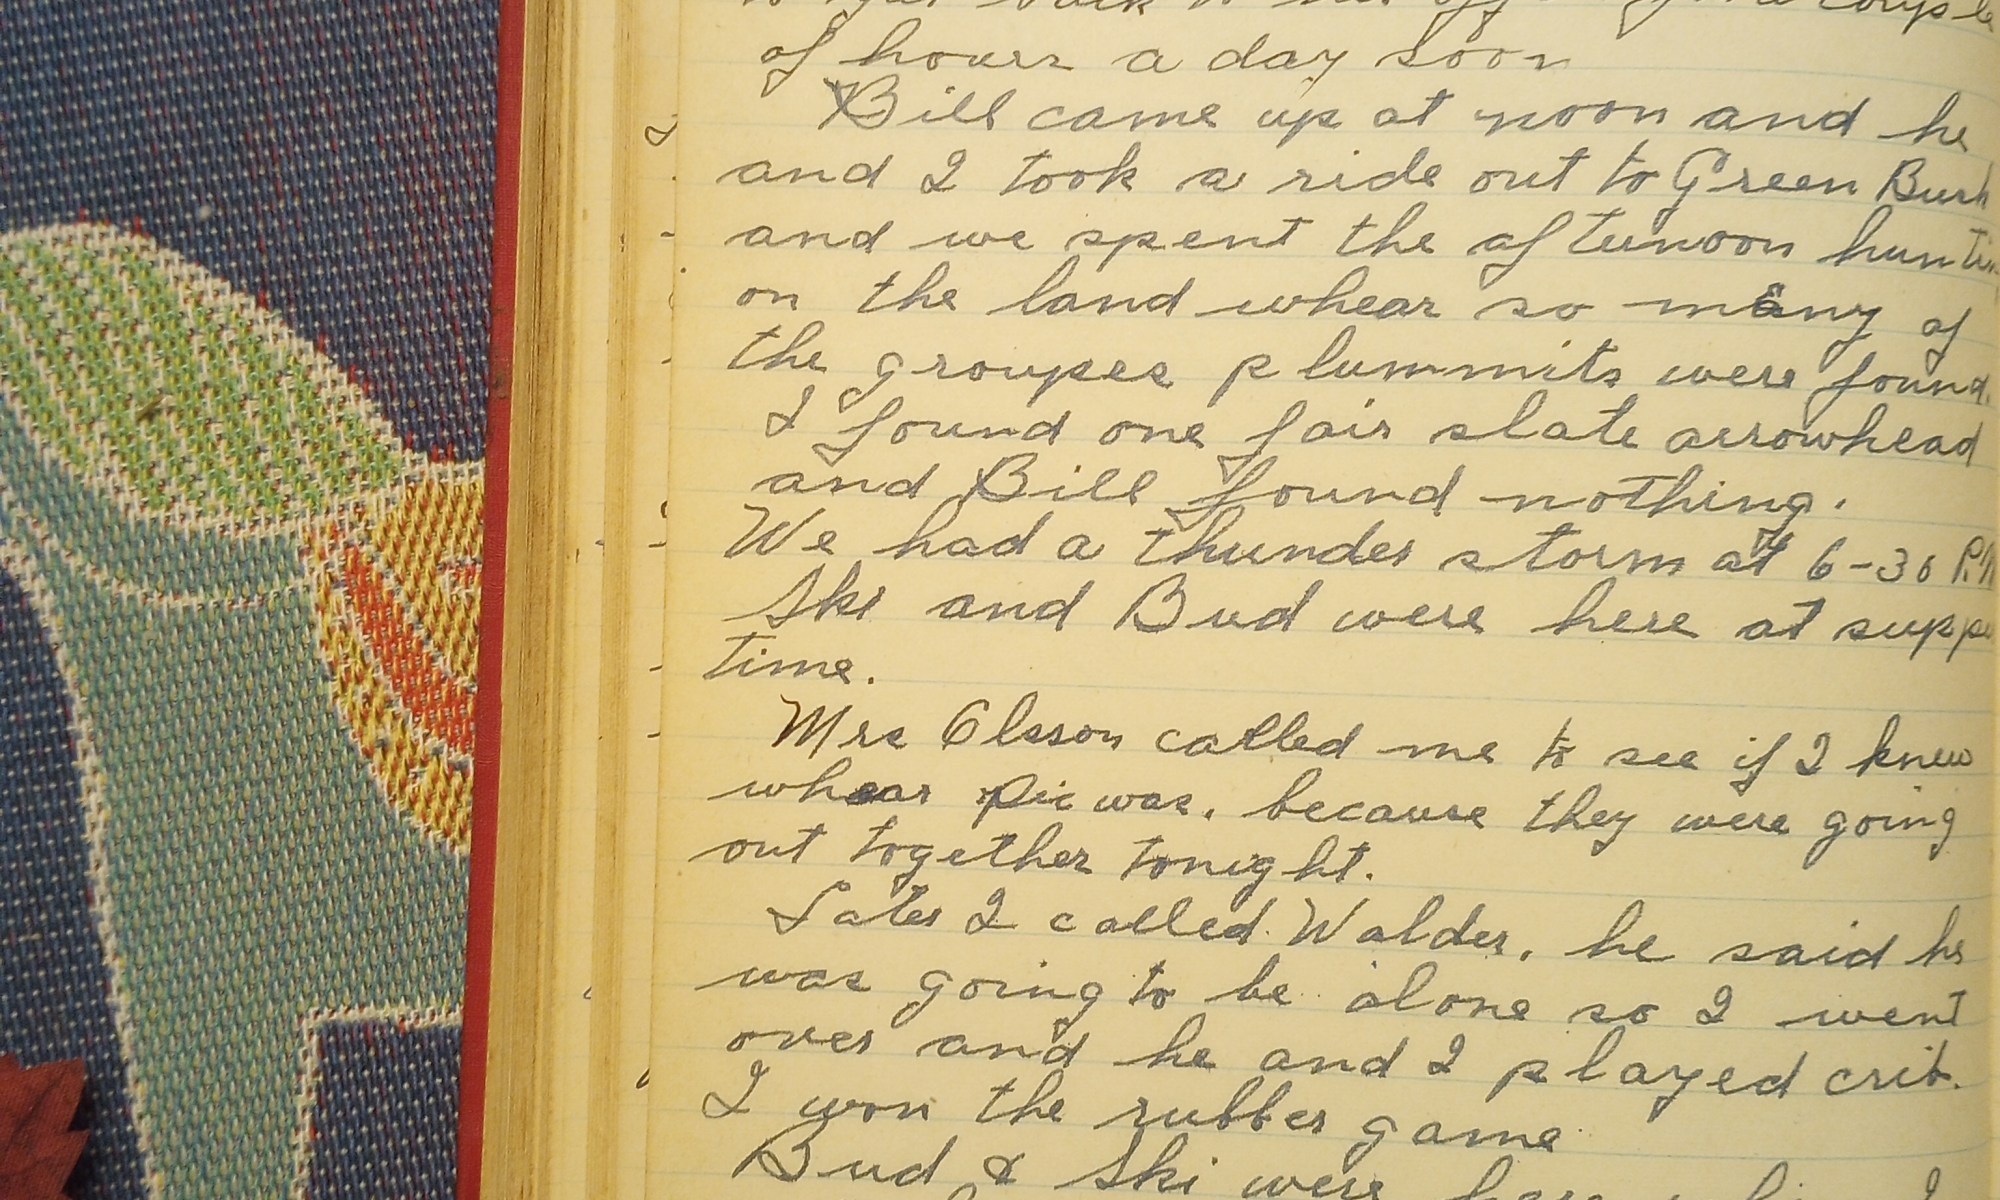 of hours a day soon
Bill came up at noon and he
and I took a ride out to Green Bush
and we spent the afternoon
on the land whear so many of
the groupes plummits were found.
I found one fair slate arrowhead
and Bill found nothing.
We had a thunder storm at 6-30 P.M
Ski and Bud were here at
time.
Mrs Olsson called me to see if I knew
whear Pic was, because they were going
out together tonight.
Later I called Walder, he said he
was going to be alone so I went
over and he and I played crib.
I won the rubber game
Bud & Ski were